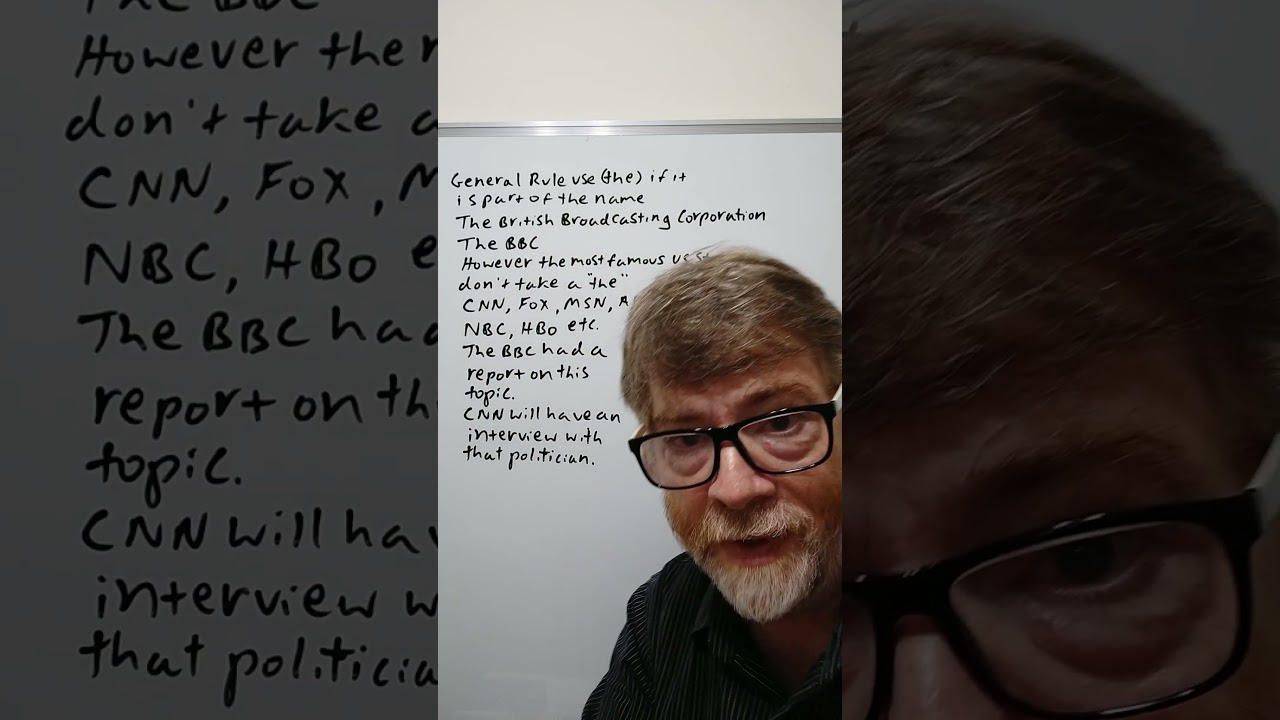 General Rule use (the) if it
is part of the name
The British Broadcasting Corporation
The BBC
However the most famous us
don't take a "the"
CNN, Fox, MSN, A
NBC, HBO etc.
The BBC had a
report on this
topic.
CNN will have an
interview with
that politician.